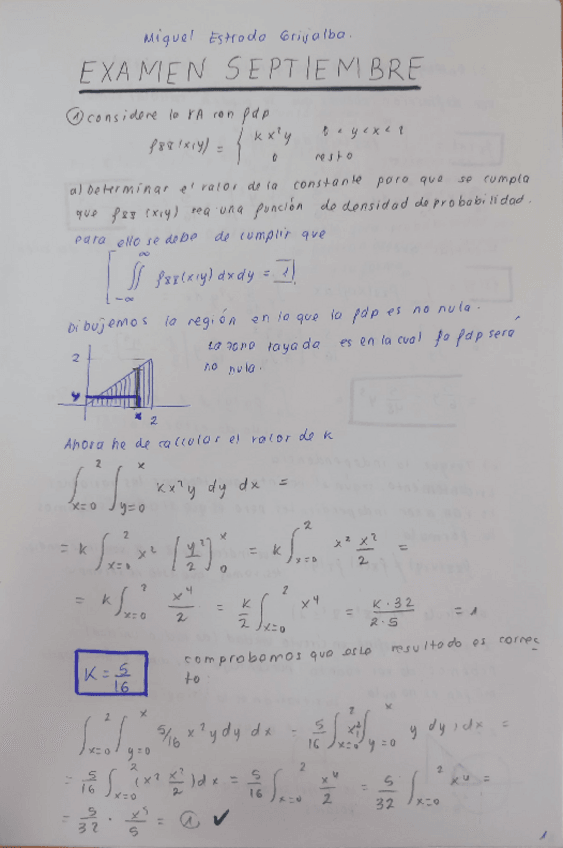 Miguel Estrada Grijalba.
EXAMEN SEPTIEMBRE
① considere la VA con fdp
fxy (x,y) = { kx²y 0 < y < x < 2
0 resto
a) Determinar el valor de la constante para que se cumpla
que fxy (x,y) sea una función de densidad de probabilidad.
para ello se debe de cumplir que
∬ fxy(x,y) dxdy = 1
∞
-∞
Dibujemos la región en la que la fdp es no nula.
La zona rayada es en la cual la fdp será
no nula.
2
y
x 2
Ahora he de calcular el valor de k
∫x=0^2 ∫y=0^x kx²y dy dx =
= k ∫x=0^2 x² [y²/2]0^x = k ∫x=0^2 x² x²/2 =
= k ∫x=0^2 x⁴/2 = k/2 ∫x=0^2 x⁴ = k·32/2·5 = 1
K = 5/16
comprobamos que este resultado es correc-
to.
∫x=0^2 ∫y=0^x 5/16 x²y dy dx = 5/16 ∫x=0^2 x² ∫y=0^x y dy, dx =
= 5/16 ∫x=0^2 (x² x²/2) dx = 5/16 ∫x=0^2 x⁴/2 = 5/32 ∫x=0^2 x⁴ =
= 5/32 · x⁵/5 = ① ✓
1